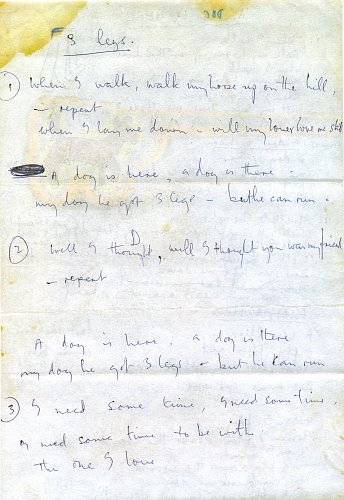 3 legs.
① When I walk, walk my horse up on the hill,
— repeat
when I lay me down - will my lover love me still
A dog is here, a dog is there.
my dog he got 3 legs — but he can run.
② Well I thought, well I thought you was my friend
— repeat
A dog is here. a dog is there
my dog he got 3 legs — but he can run
③ I need some time, I need some time,
I need some time to be with
the one I love